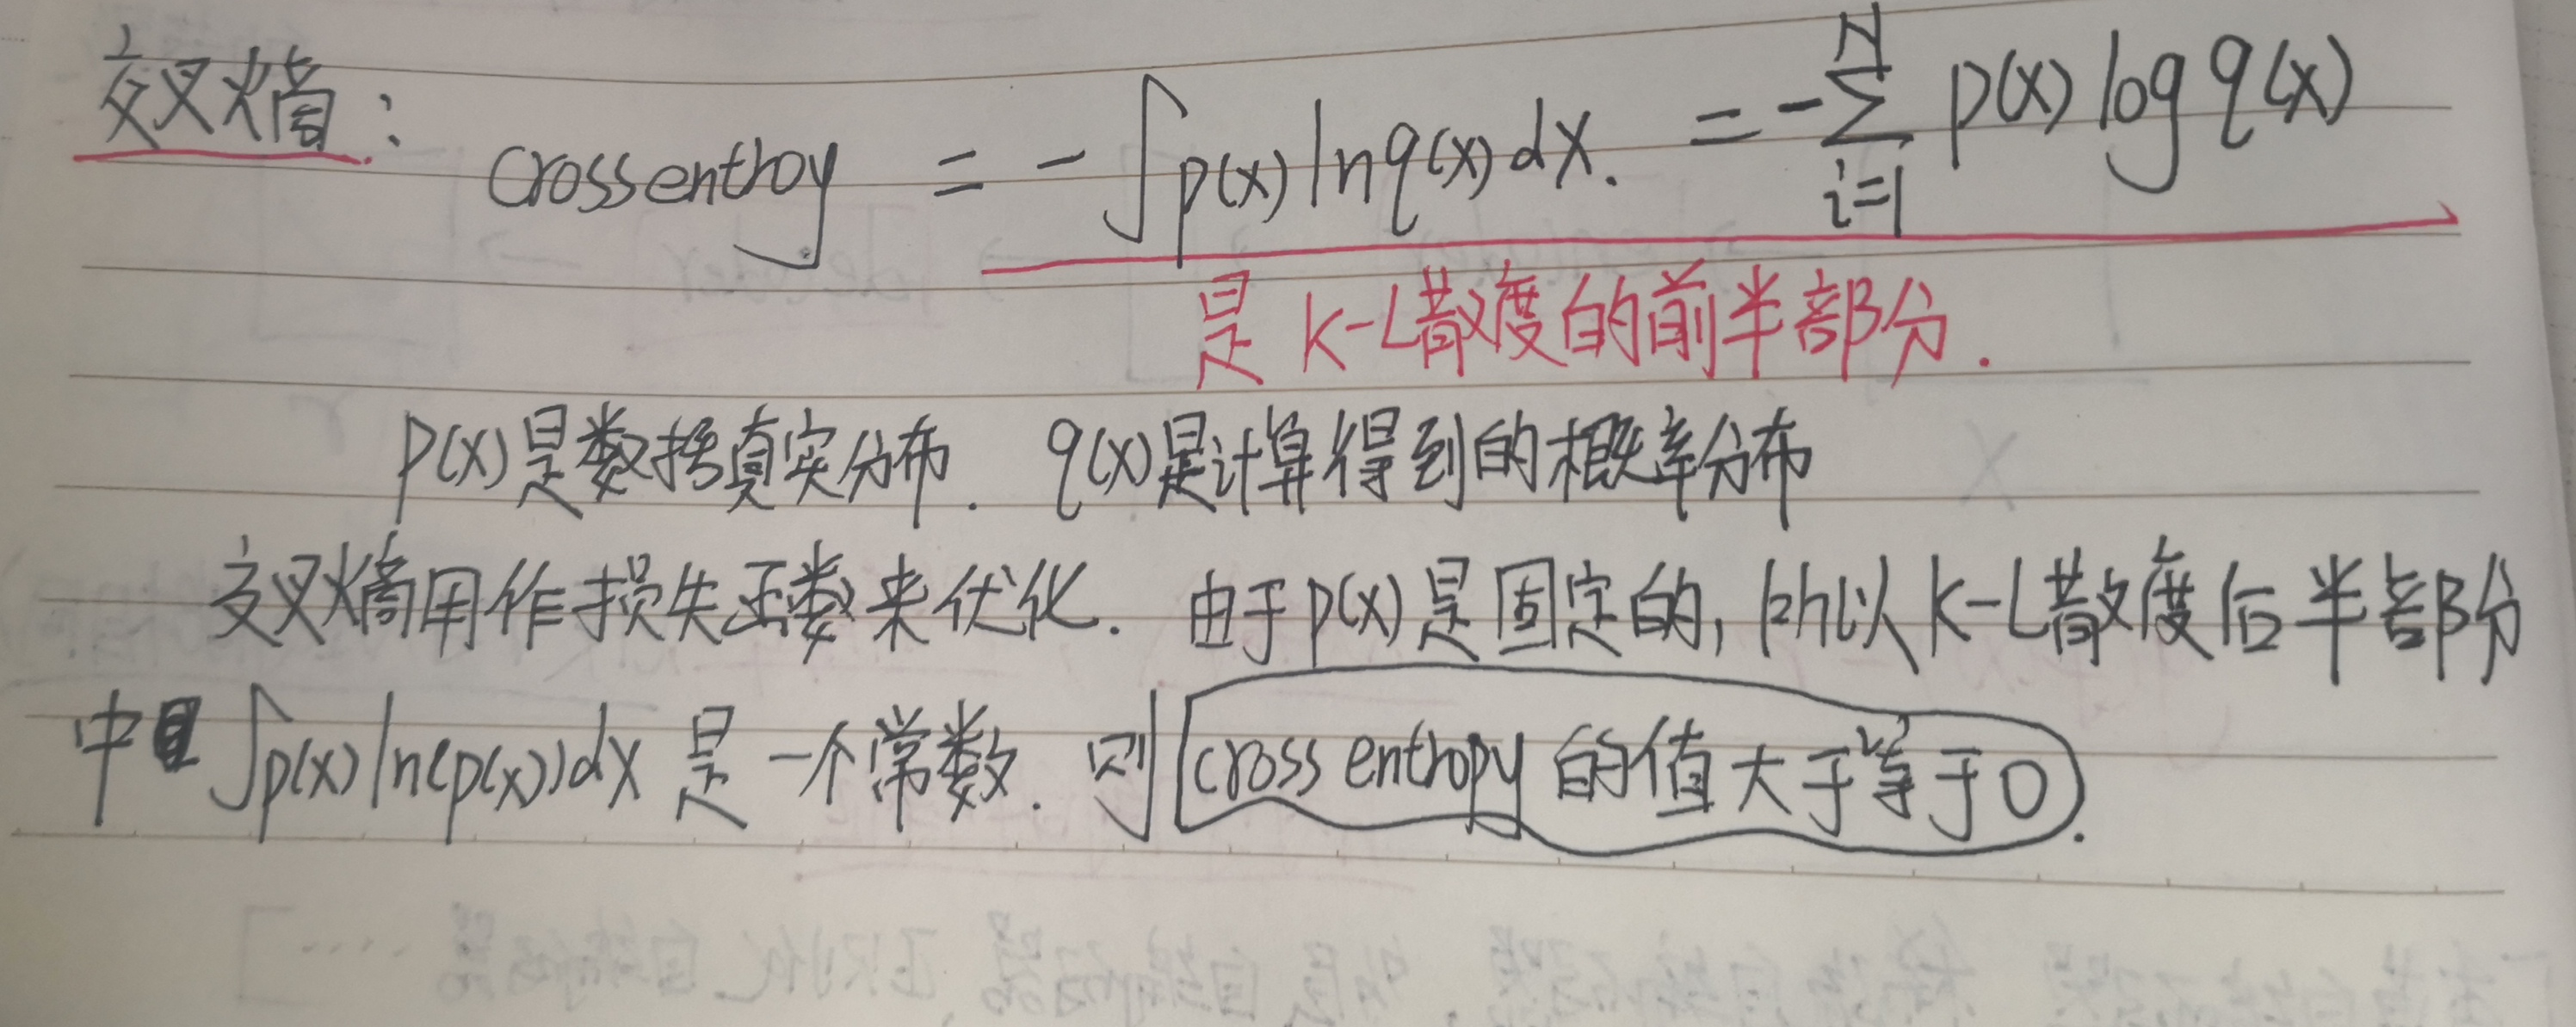 交叉熵：
crossenthoy = - ∫p(x) ln q(x) dx. = - ∑_{i=1}^{N} p(x) log q(x)
是 K-L散度的前半部分.
p(x)是数据真实分布. q(x)是计算得到的概率分布
交叉熵用作损失函数来优化. 由于p(x)是固定的, 所以K-L散度后半部分
中 ∫p(x) ln(p(x))dx 是一个常数. 则 cross enthopy 的值大于等于0.